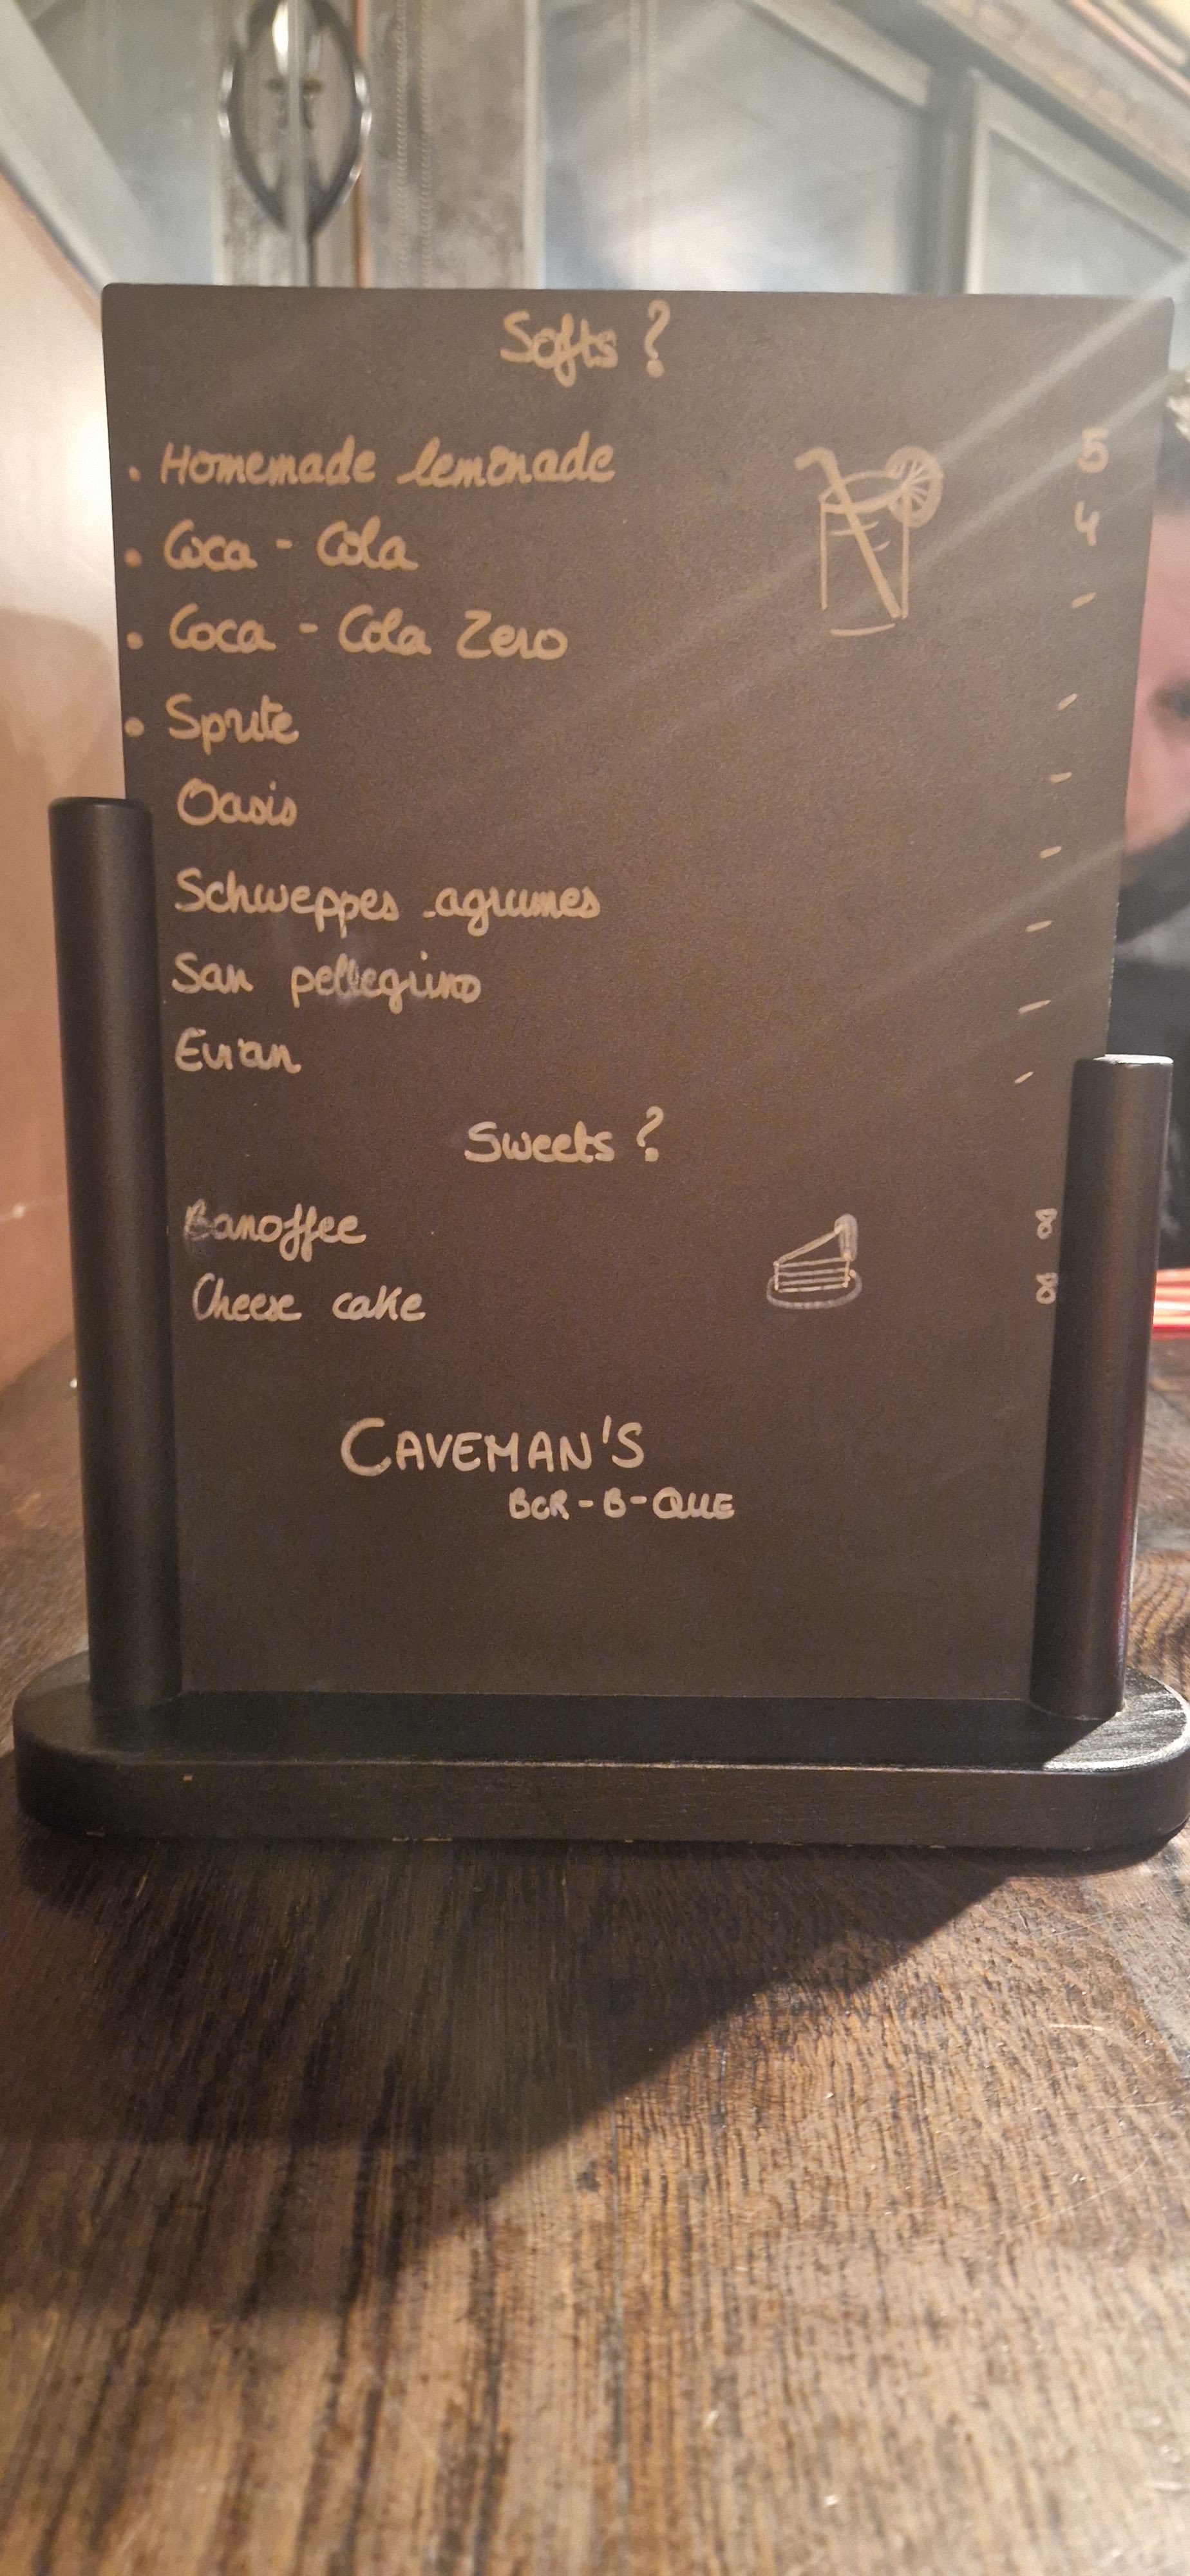 Softs ?
• Homemade lemonade 5
• Coca - Cola 4
• Coca - Cola Zero -
• Sprite -
Oasis -
Schweppes agrumes -
San pellegrino -
Evian -
Sweets ?
Banoffee 8
Cheese cake 8
CAVEMAN'S
BAR-B-QUE